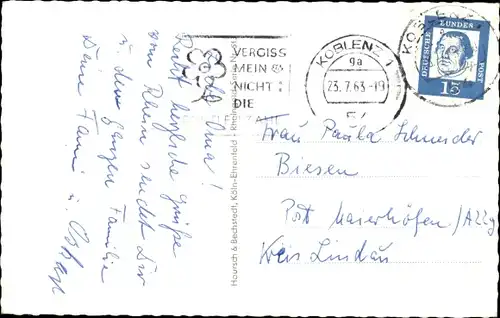 Liebe Oma!
Recht herzliche Grüße
vom Rhein sendet Dir
u. dem ganzen Familie
Deine Fami u.
VERGISS
MEIN
NICHT
DIE
KOBLENZ 1
ga
23.7.63-19
KOBLENZ
DEUTSCHE BUNDESPOST
15
Hoursch & Bechstedt, Köln-Ehrenfeld
Frau Paula Schneider
Biesen
Post Maierhöfen/Allg
Kreis Lindau